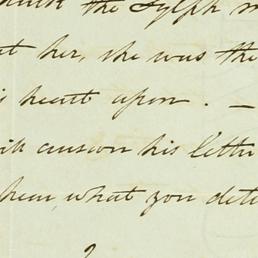 the Sylph
her, she was the
heart upon. —
his letter
hear what you dete